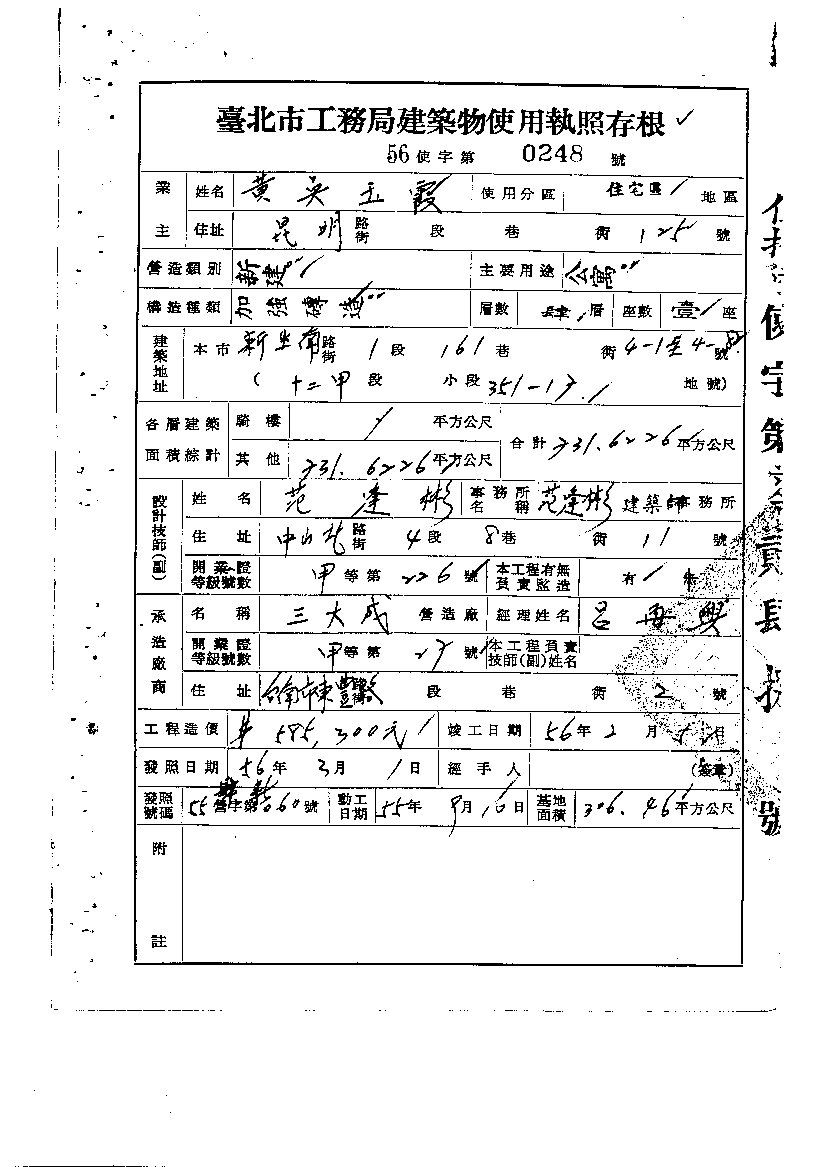 臺北市工務局建築物使用執照存根
56使字第 0248 號
業主 姓名 黃吳玉霞 使用分區 住宅區 地區
住址 昆明 路街 段 巷 街 125 號
營造類別 新建 主要用途 公寓
構造種類 加強磚造 層數 肆 層 座數 壹 座
建築地址 本市 新生南 路街 1 段 161 巷 街 4-1至4-8 號
( 十二甲 段 小段 351-17 地號)
各層建築面積綜計 騎樓 平方公尺 合計 731.6226 平方公尺
其他 731.6226 平方公尺
設計技師(副) 姓名 范逢彬 事務所名稱 范逢彬 建築師事務所
住址 中山北 路街 4 段 8 巷 街 11 號
開業證等級號數 甲 等第 226 號 本工程有無負責監造 有
承造廠商 名稱 三大成 營造廠 經理姓名 呂再興
開業證等級號數 甲 等第 27 號 本工程負責技師(副)姓名
住址 台南市東豐 路街 段 巷 街 2 號
工程造價 585,300元 竣工日期 56年 2 月 5 日
發照日期 56年 3 月 1 日 經手人 (簽章)
發照號碼 55 營字第 060 號 動工日期 55年 9 月 16 日 基地面積 306.46 平方公尺
附註